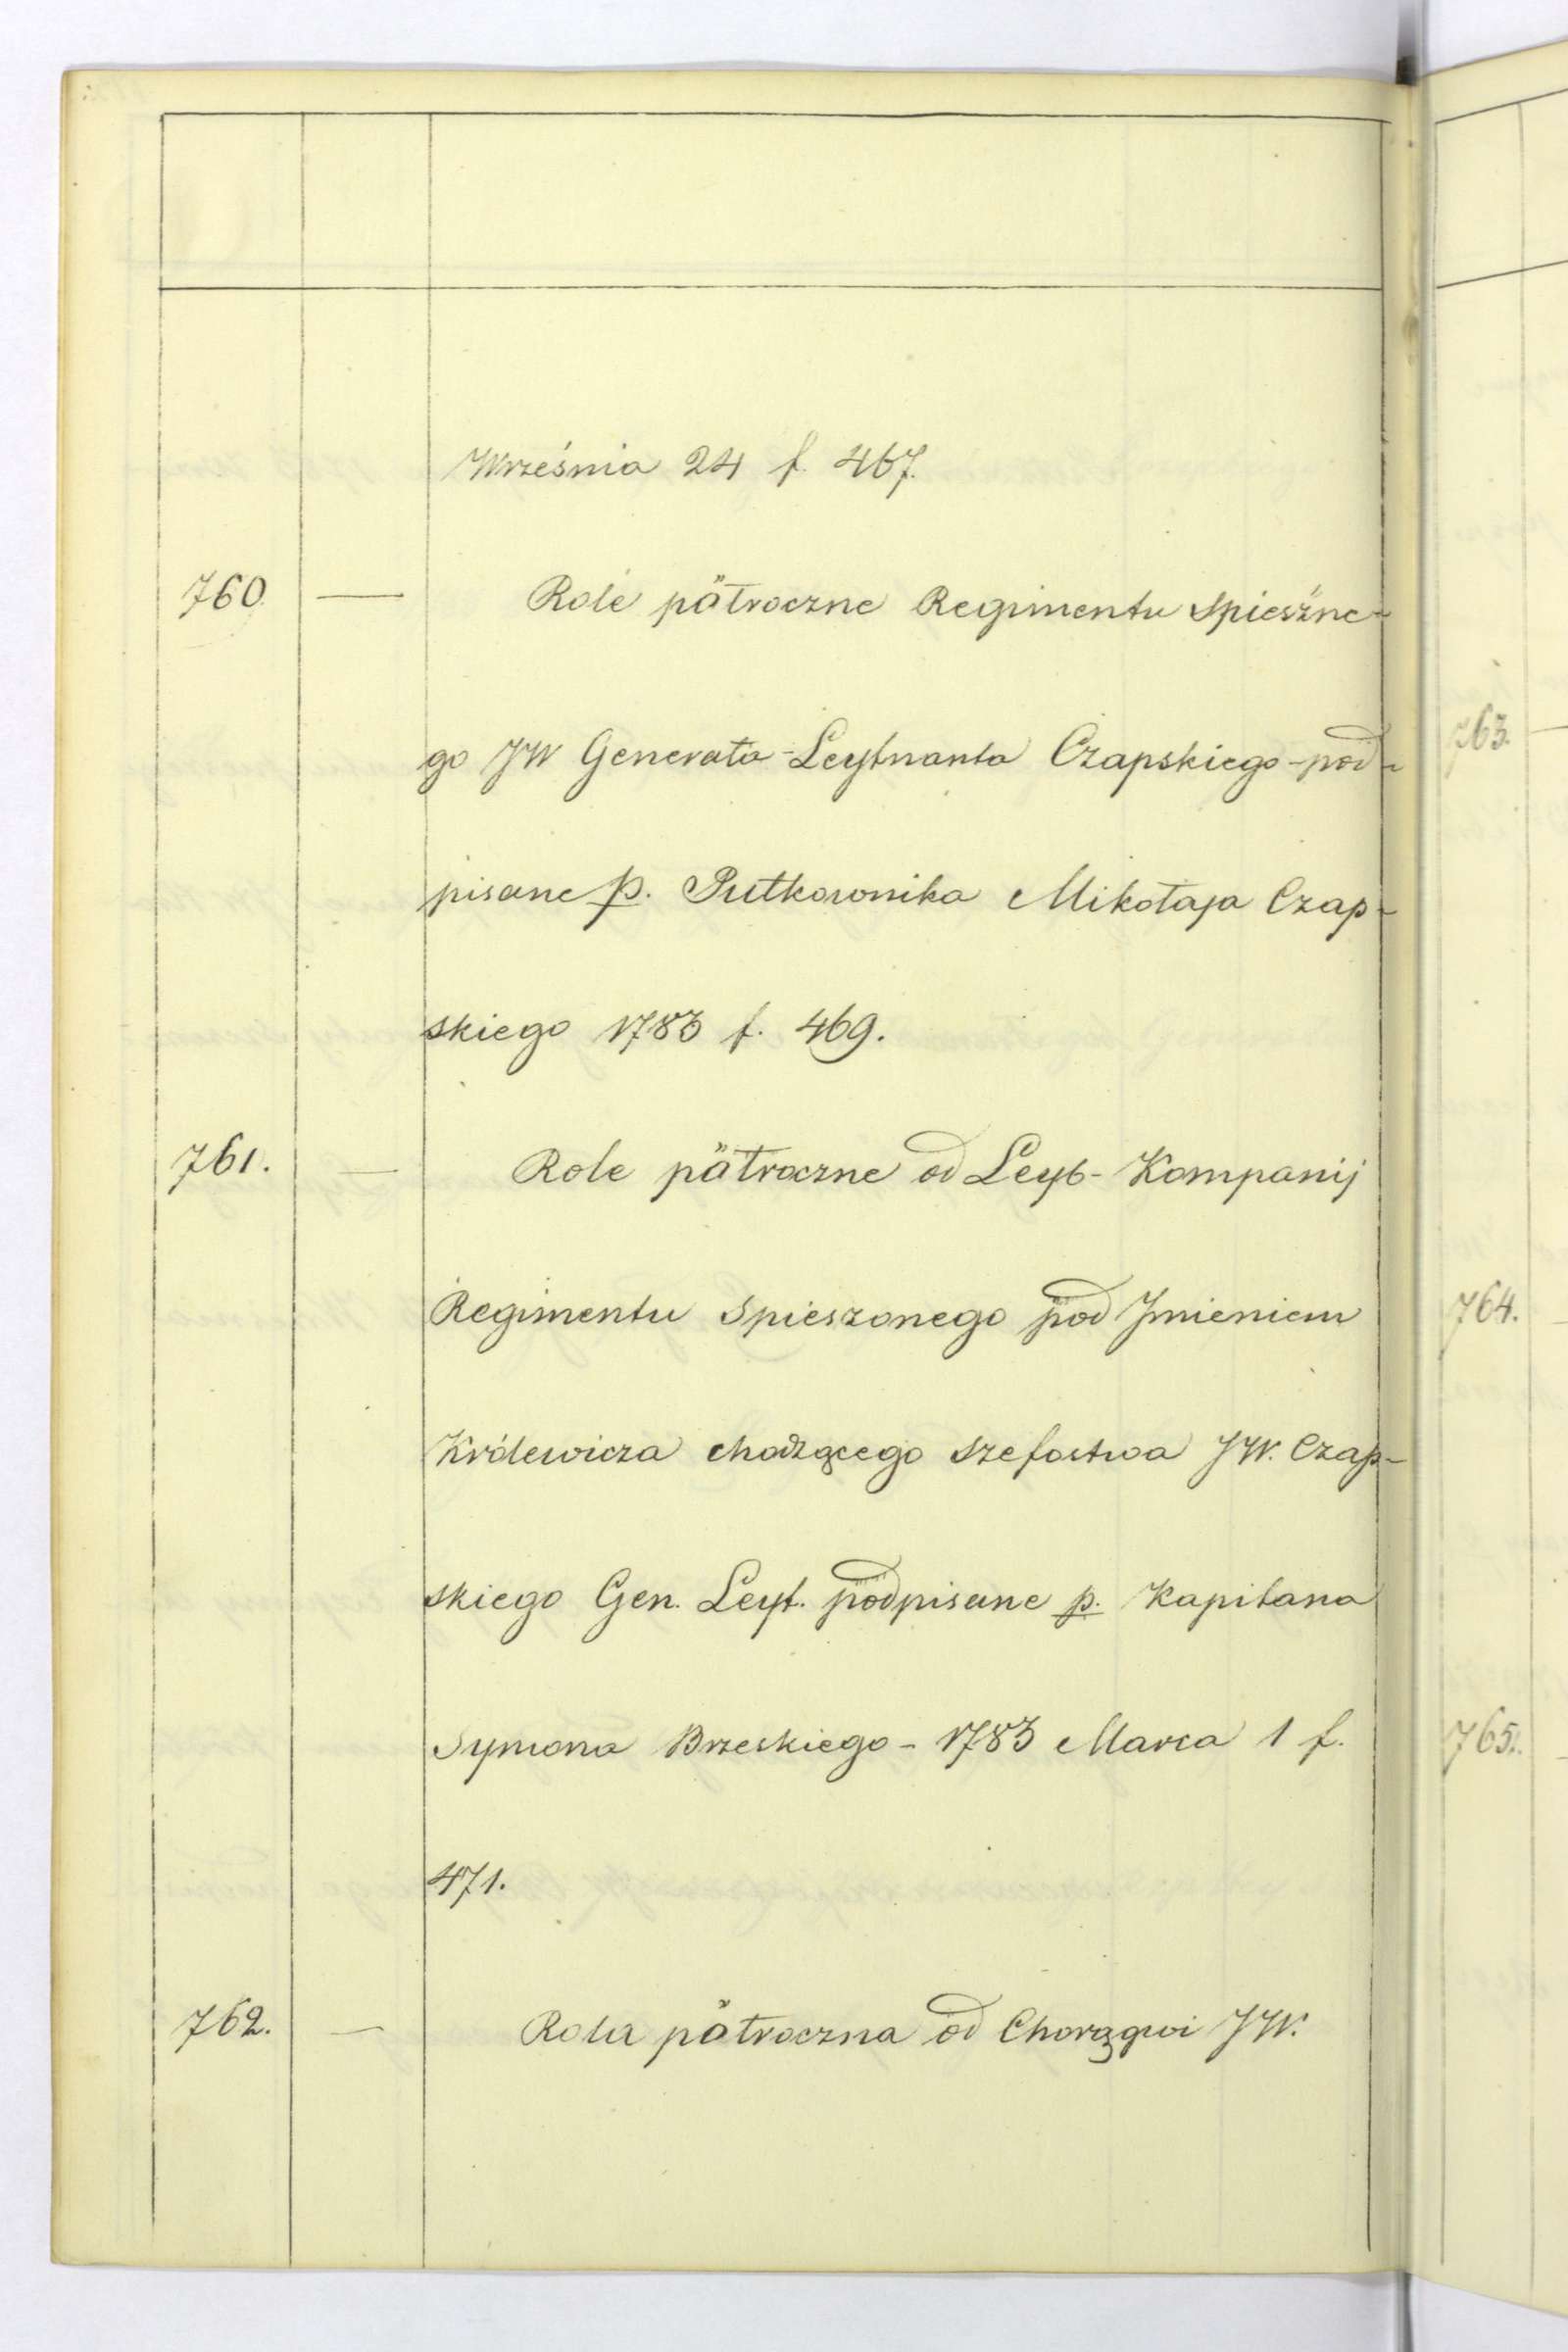 Września 24 f. 467.
760. — Role pöłroczne Regimentu Spieszne-
go JW Generała-Leytnanta Czapskiego - pod-
pisane p. Pułkownika Mikołaja Czap-
skiego 1783 f. 469.
761. — Role pöłroczne od Leyb-Kompanij
Regimentu Spieszonego pod Jmieniem
Królewicza chodzącego szefostwa JW. Czap-
skiego Gen. Leyt. podpisane p. Kapitana
Symona Brzeskiego - 1783 Marca 1 f.
471.
762. — Rola pöłroczna od Chorągwi JW.
763.
764.
765.